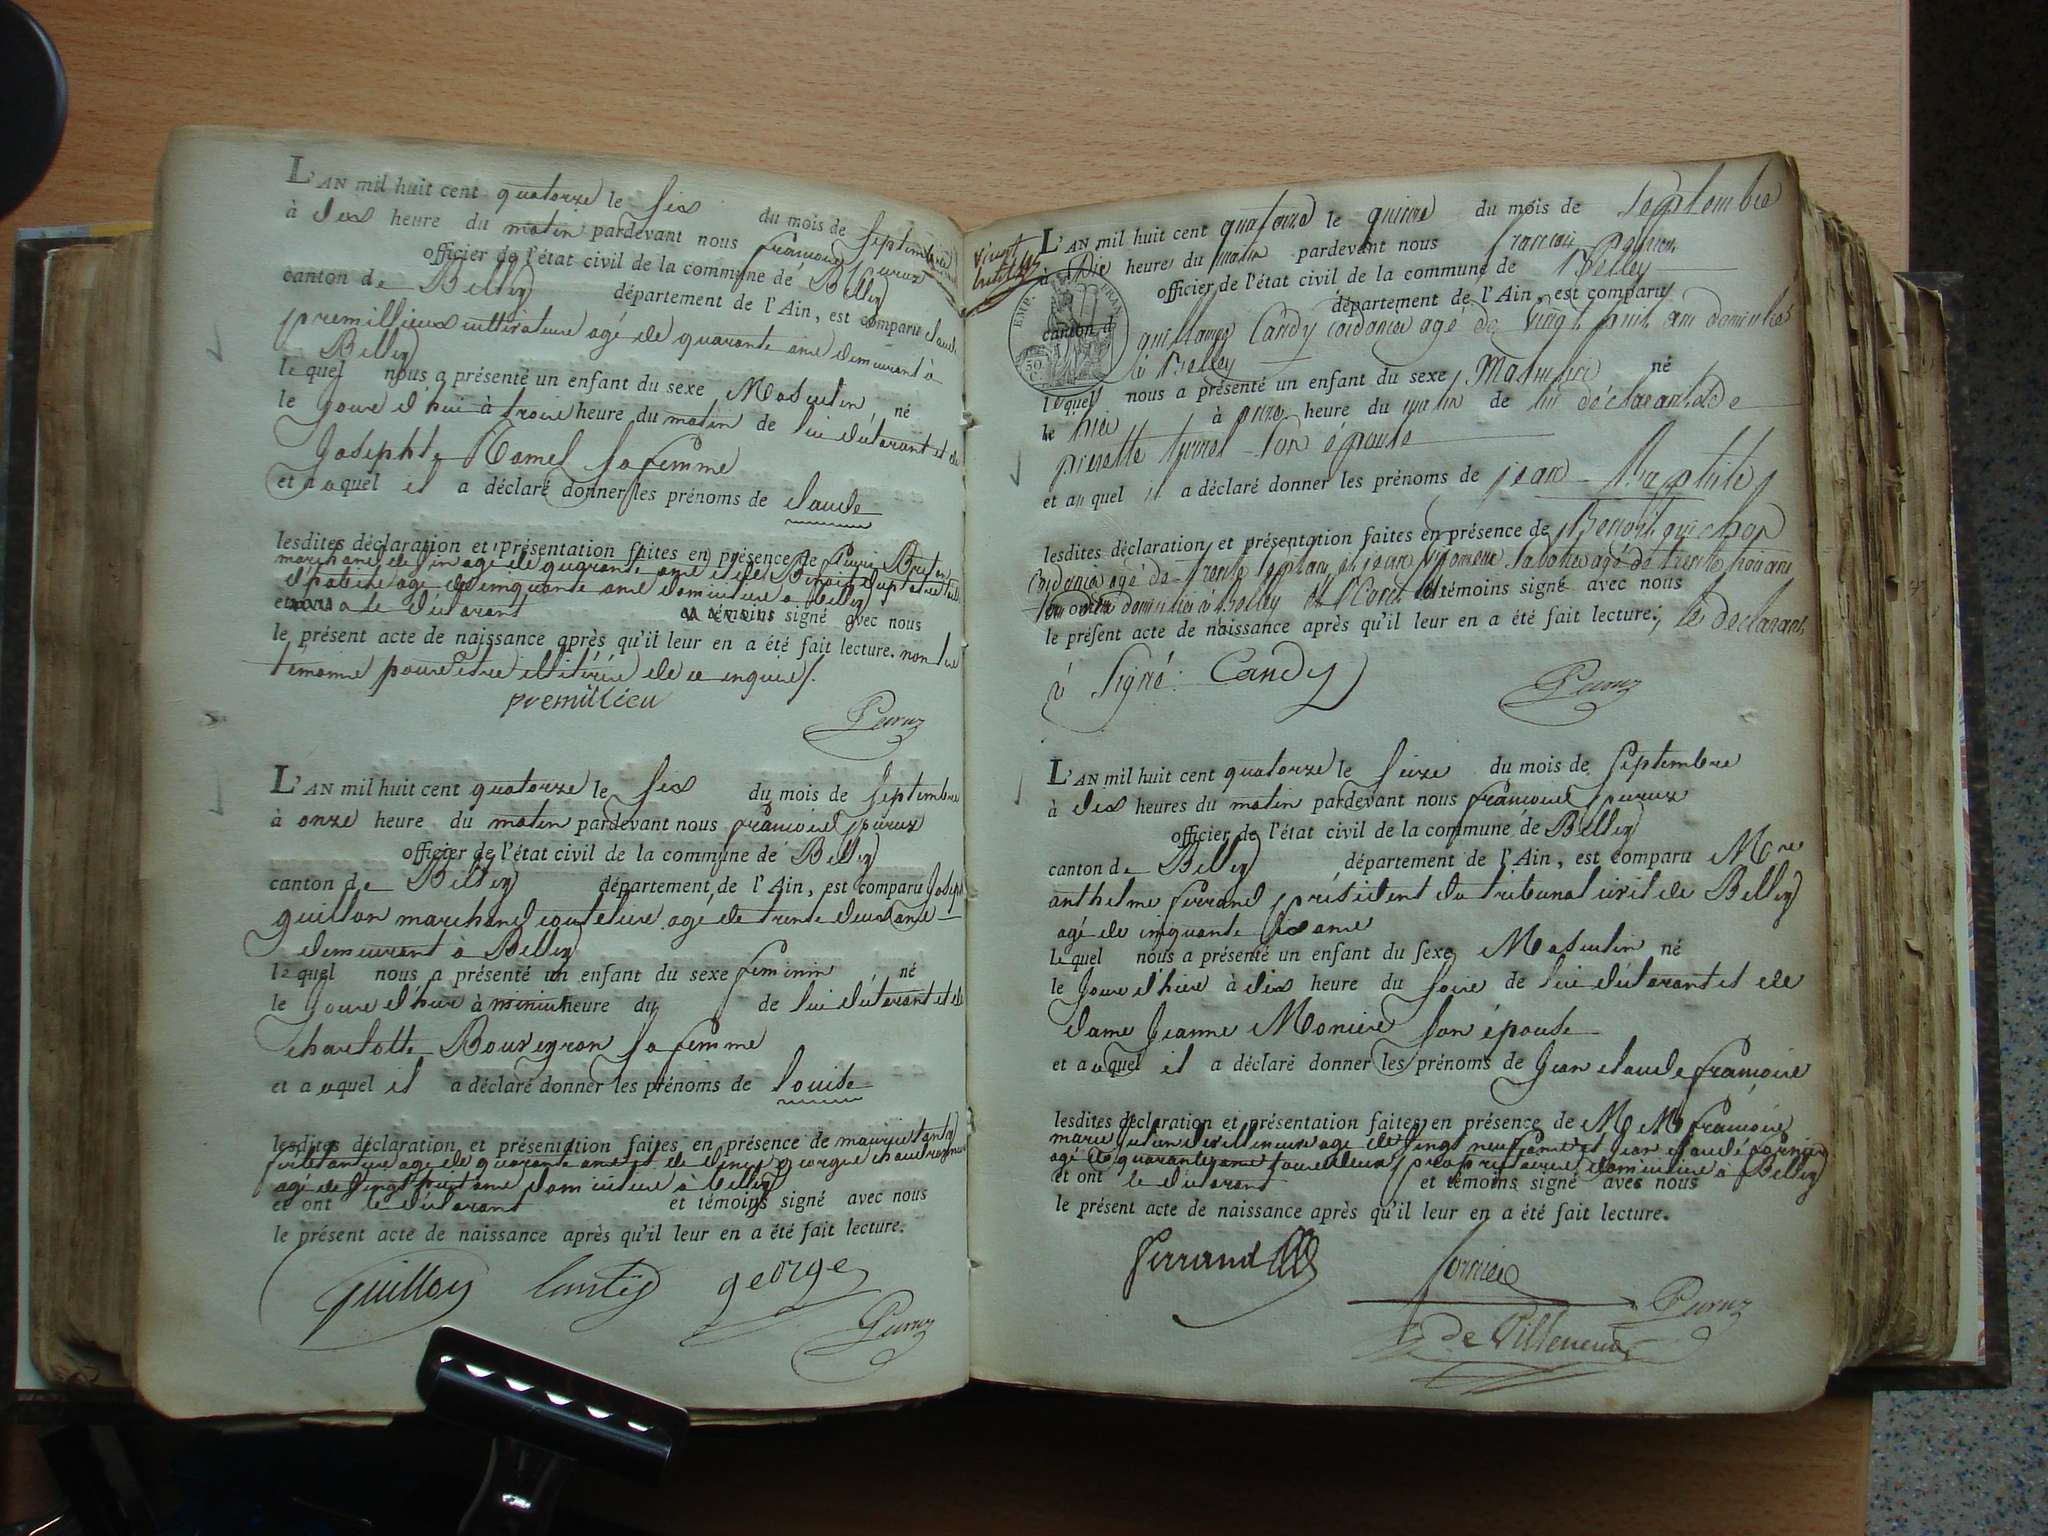 L'AN mil huit cent quatorze le six du mois de septembre
à dix heure du matin pardevant nous françois peruz
officier de l'état civil de la commune de Belley
canton de Belley département de l'Ain, est comparu claude
premillieux agé de quarante ans demeurant à
Belley
lequel nous a présenté un enfant du sexe Masculin né
le jour d'hui à trois heure du matin de lui déclarant et de
Josephte Ramel sa femme
et auquel il a déclaré donner les prénoms de claude
lesdites déclaration et présentation faites en présence de Pierre
marchand de vin agé de quarante ans et de
agé de cinquante ans domiciliés à Belley
et ont le déclarant témoins signé avec nous
le présent acte de naissance après qu'il leur en a été fait lecture. non les
temoins pour être illitéré de ce enquis.
premillieu
Peruz
L'AN mil huit cent quatorze le six du mois de septembre
à onze heure du matin pardevant nous françois peruz
officier de l'état civil de la commune de Belley
canton de Belley département de l'Ain, est comparu Joseph
guillon marchand coutelier agé de trente deux ans
demeurant à Belley
lequel nous a présenté un enfant du sexe feminin né
le jour d'hier à minuit heure du de lui déclarant et de
charlotte Bouveyron sa femme
et auquel il a déclaré donner les prénoms de Louise
lesdites déclaration et présentation faites en présence de maurice
ferblantier agé de quarante ans et de george
agé de vingt huit ans domiciliés à Belley
et ont le déclarant et témoins signé avec nous
le présent acte de naissance après qu'il leur en a été fait lecture.
Guillon george
Peruz
vingt
huit
L'AN mil huit cent quatorze le quinze du mois de septembre
à Dix heures du matin pardevant nous francois
officier de l'état civil de la commune de Belley
EMP. FRAN.
50 C.
canton d département de l'Ain, est comparu
Candy agé de vingt huit ans domicilié
à Belley
lequel nous a présenté un enfant du sexe Masculin né
le hier à onze heure du matin de lui déclarant et de
pierrette son épouse
et auquel il a déclaré donner les prénoms de jean Baptiste
lesdites déclaration et présentation faites en présence de Benoit
agé de trente sept ans et jean agé de trente trois ans
domiciliés à Belley témoins signé avec nous
le présent acte de naissance après qu'il leur en a été fait lecture; le declarant
à signé. Candy
Peruz
L'AN mil huit cent quatorze le seize du mois de septembre
à dix heures du matin pardevant nous françois peruz
officier de l'état civil de la commune de Belley
canton de Belley département de l'Ain, est comparu Mre
anthelme ferrand président du tribunal civil de Belley
agé de cinquante six ans
lequel nous a présenté un enfant du sexe Masculin né
le jour d'hier à dix heure du soir de lui déclarant et de
dame Jeanne Monier son épouse
et auquel il a déclaré donner les prénoms de Jean claude françois
lesdites déclaration et présentation faites en présence de M M françois
marie agé de vingt neuf ans et jean claude
agé de quarante ans propriétaires domiciliés à Belley
et ont le déclarant et témoins signé avec nous
le présent acte de naissance après qu'il leur en a été fait lecture.
Ferrand
Peruz
de Villeneuve